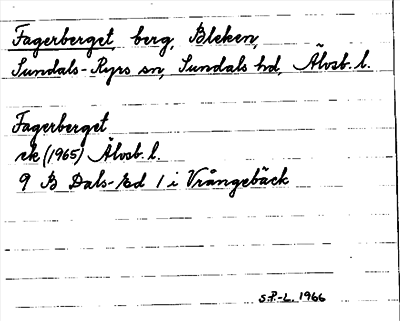 Fagerberget, berg, Bleken,
Sundals-Ryrs sn, Sundals hd, Älvsb. l.
Fagerberget
ek (1965) Älvsb. l.
9 B Dals-Ed 1 i Vrångebäck
S.P.-L. 1966